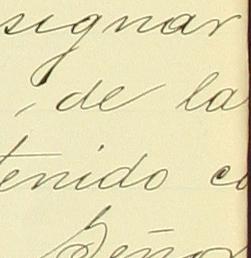 signar
, de la
tenido co
Señor